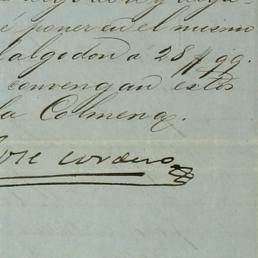 poner en el mismo
algodon á 28 # 99.
convengan estos
la Colmena.
José Cordero